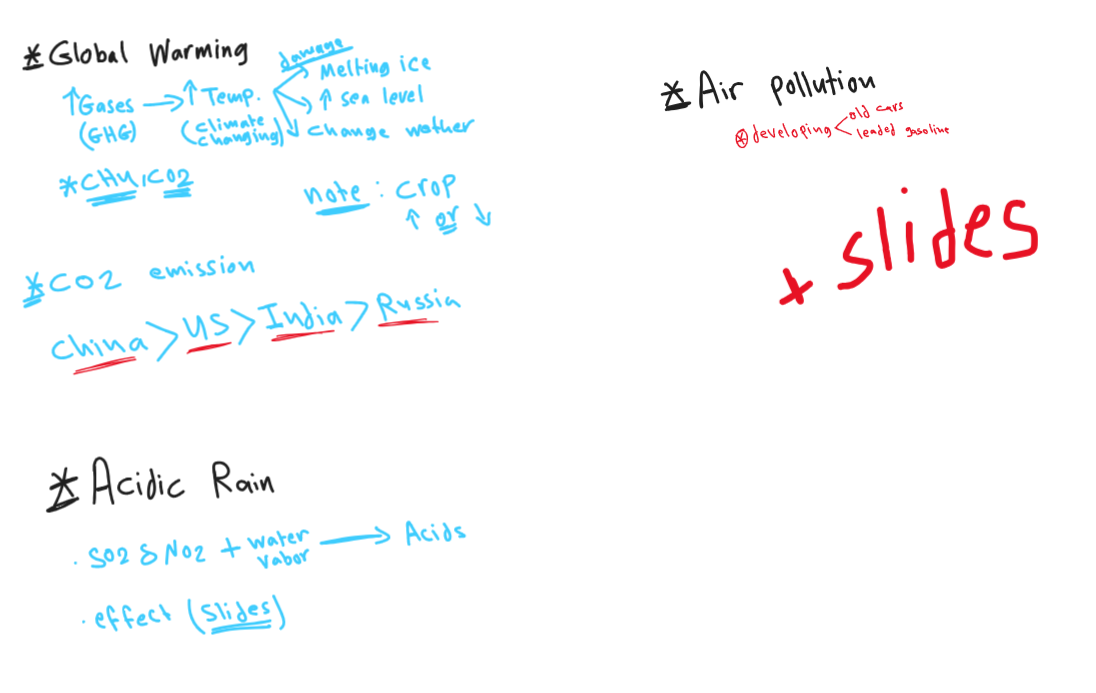 *Global Warming
damage
↑Gases → ↑Temp. Melting ice
(GHG) (climate changing) ↑ sea level
change wether
*CH4, CO2
note: crop
↑ or ↓
*CO2 emission
China > US > India > Russia
*Acidic Rain
. SO2 & NO2 + water vabor → Acids
. effect (slides)
*Air pollution
* developing < old cars
leaded gasoline
+ slides